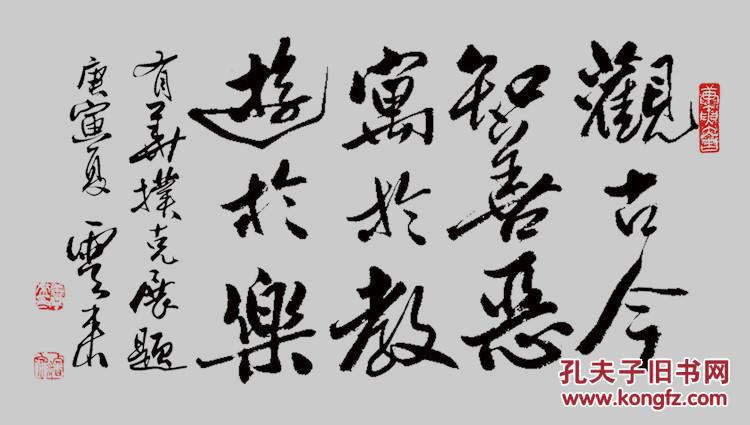 觀古今
智善惡
寓於教
遊於樂
有美撲克展題
庚寅夏 雲來
孔夫子旧书网
www.kongfz.com